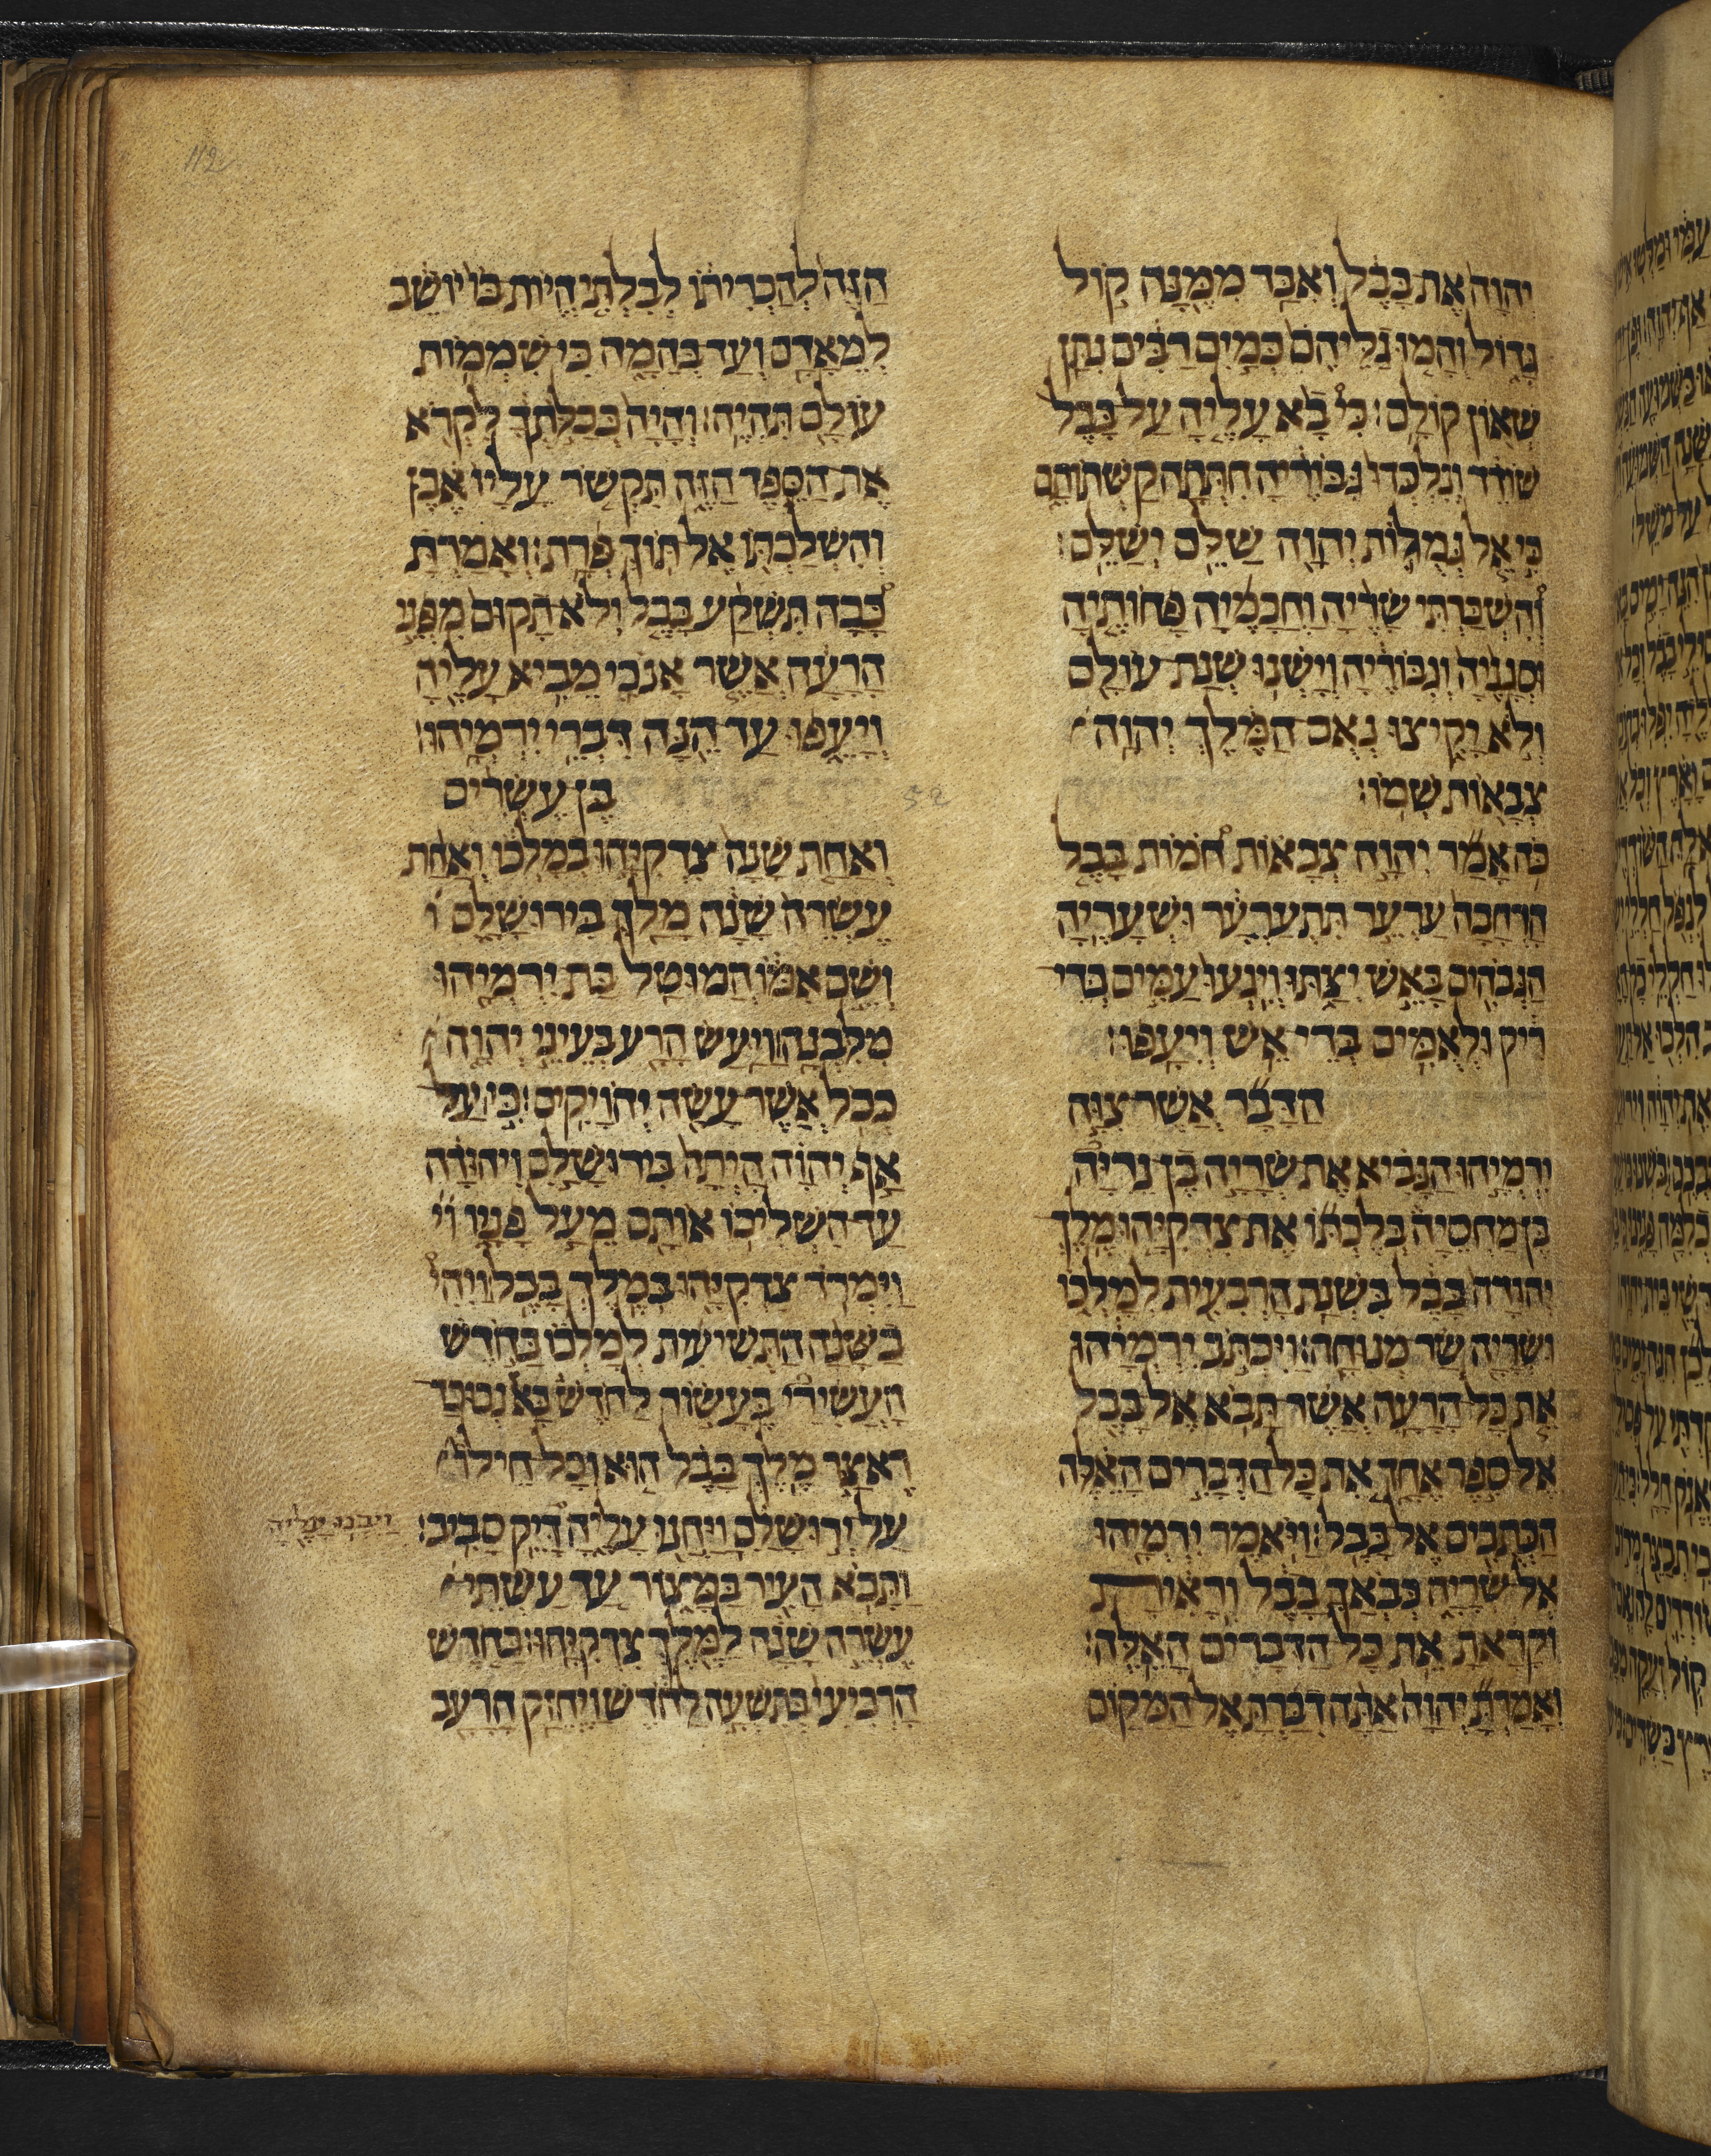 יהוה את בבל ואבד ממנה קול
גדול והמו גליהם כמים רבים נתן
שאון קולם׃ כי בא עליה על בבל
שודד ונלכדו גבוריה חתתה קשתותם
כי אל גמולות יהוה שלם ישלם׃
והשכרתי שריה וחכמיה פחותיה
וסגניה וגבוריה וישנו שנת עולם
ולא יקיצו נאם המלך יהוה
צבאות שמו׃
כה אמר יהוה צבאות חמות בבל
הרחבה ערער תתערער ושעריה
הגבהים באש יצתו ויגעו עמים בדי
ריק ולאמים בדי אש ויעפו׃
הדבר אשר צוה
ירמיהו הנביא את שריה בן נריה
בן מחסיה בלכתו את צדקיהו מלך
יהודה בבל בשנת הרבעית למלכו
ושריה שר מנוחה׃ ויכתב ירמיהו
את כל הרעה אשר תבא אל בבל
אל ספר אחד את כל הדברים האלה
הכתבים אל בבל׃ ויאמר ירמיהו
אל שריה כבאך בבל וראית
וקראת את כל הדברים האלה׃
ואמרת יהוה אתה דברת אל המקום
הזה להכריתו לבלתי היות בו יושב
למאדם ועד בהמה כי שממות
עולם תהיה׃ והיה ככלתך לקרא
את הספר הזה תקשר עליו אבן
והשלכתו אל תוך פרת׃ ואמרת
ככה תשקע בבל ולא תקום מפני
הרעה אשר אנכי מביא עליה
ויעפו עד הנה דברי ירמיהו׃
52
בן עשרים
ואחת שנה צדקיהו במלכו ואחת
עשרה שנה מלך בירושלם
ושם אמו חמוטל בת ירמיהו
מלבנה׃ ויעש הרע בעיני יהוה
ככל אשר עשה יהויקים׃ כי על
אף יהוה היתה בירושלם ויהודה
עד השליכו אותם מעל פניו
וימרד צדקיהו במלך בבל׃ ויהי
בשנה התשיעית למלכו בחדש
העשירי בעשור לחדש בא נבוכד
ראצר מלך בבל הוא וכל חילו
על ירושלם ויחנו עליה דיק סביב׃
ויבנו עליה
ותבא העיר במצור עד עשתי
עשרה שנה למלך צדקיהו׃ בחדש
הרביעי בתשעה לחדש ויחזק הרעב
112